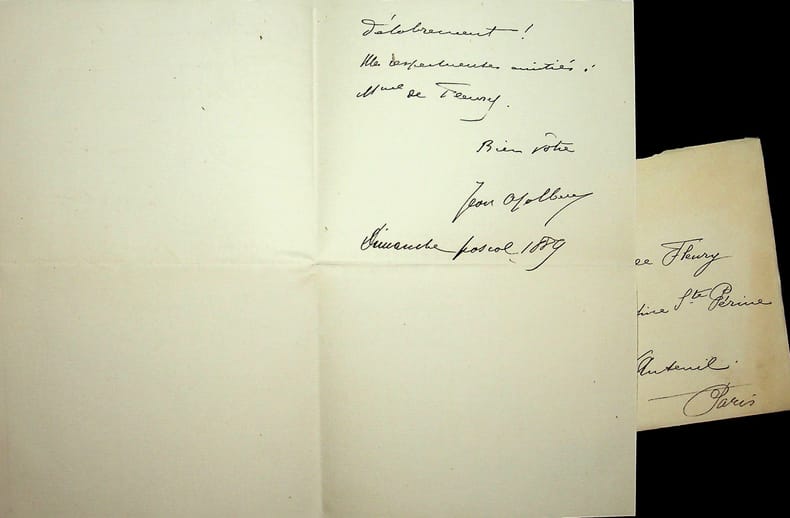 délabrement !
Mes respectueuses amitiés à
Mme de Fleury.
Bien vôtre
Jean
Dimanche pascal 1889
de Fleury
Ste Périne
Auteuil.
Paris